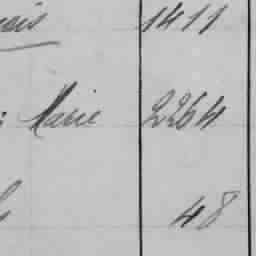 1411
: Marie 2264
48